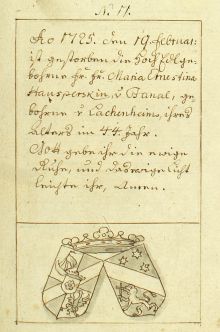 N. 11.
Ao 1725. den 19. Februar:
ist gestorben die Hoch Edl ge-
bohrne fr: fr: Maria Ernestina
v Fanal, ge-
bohrne v Lackenheims, ihres
Alters im 44. Jahr.
Gott gebe ihr die ewige
Ruhe, und das ewige licht
leichte ihr, Amen.